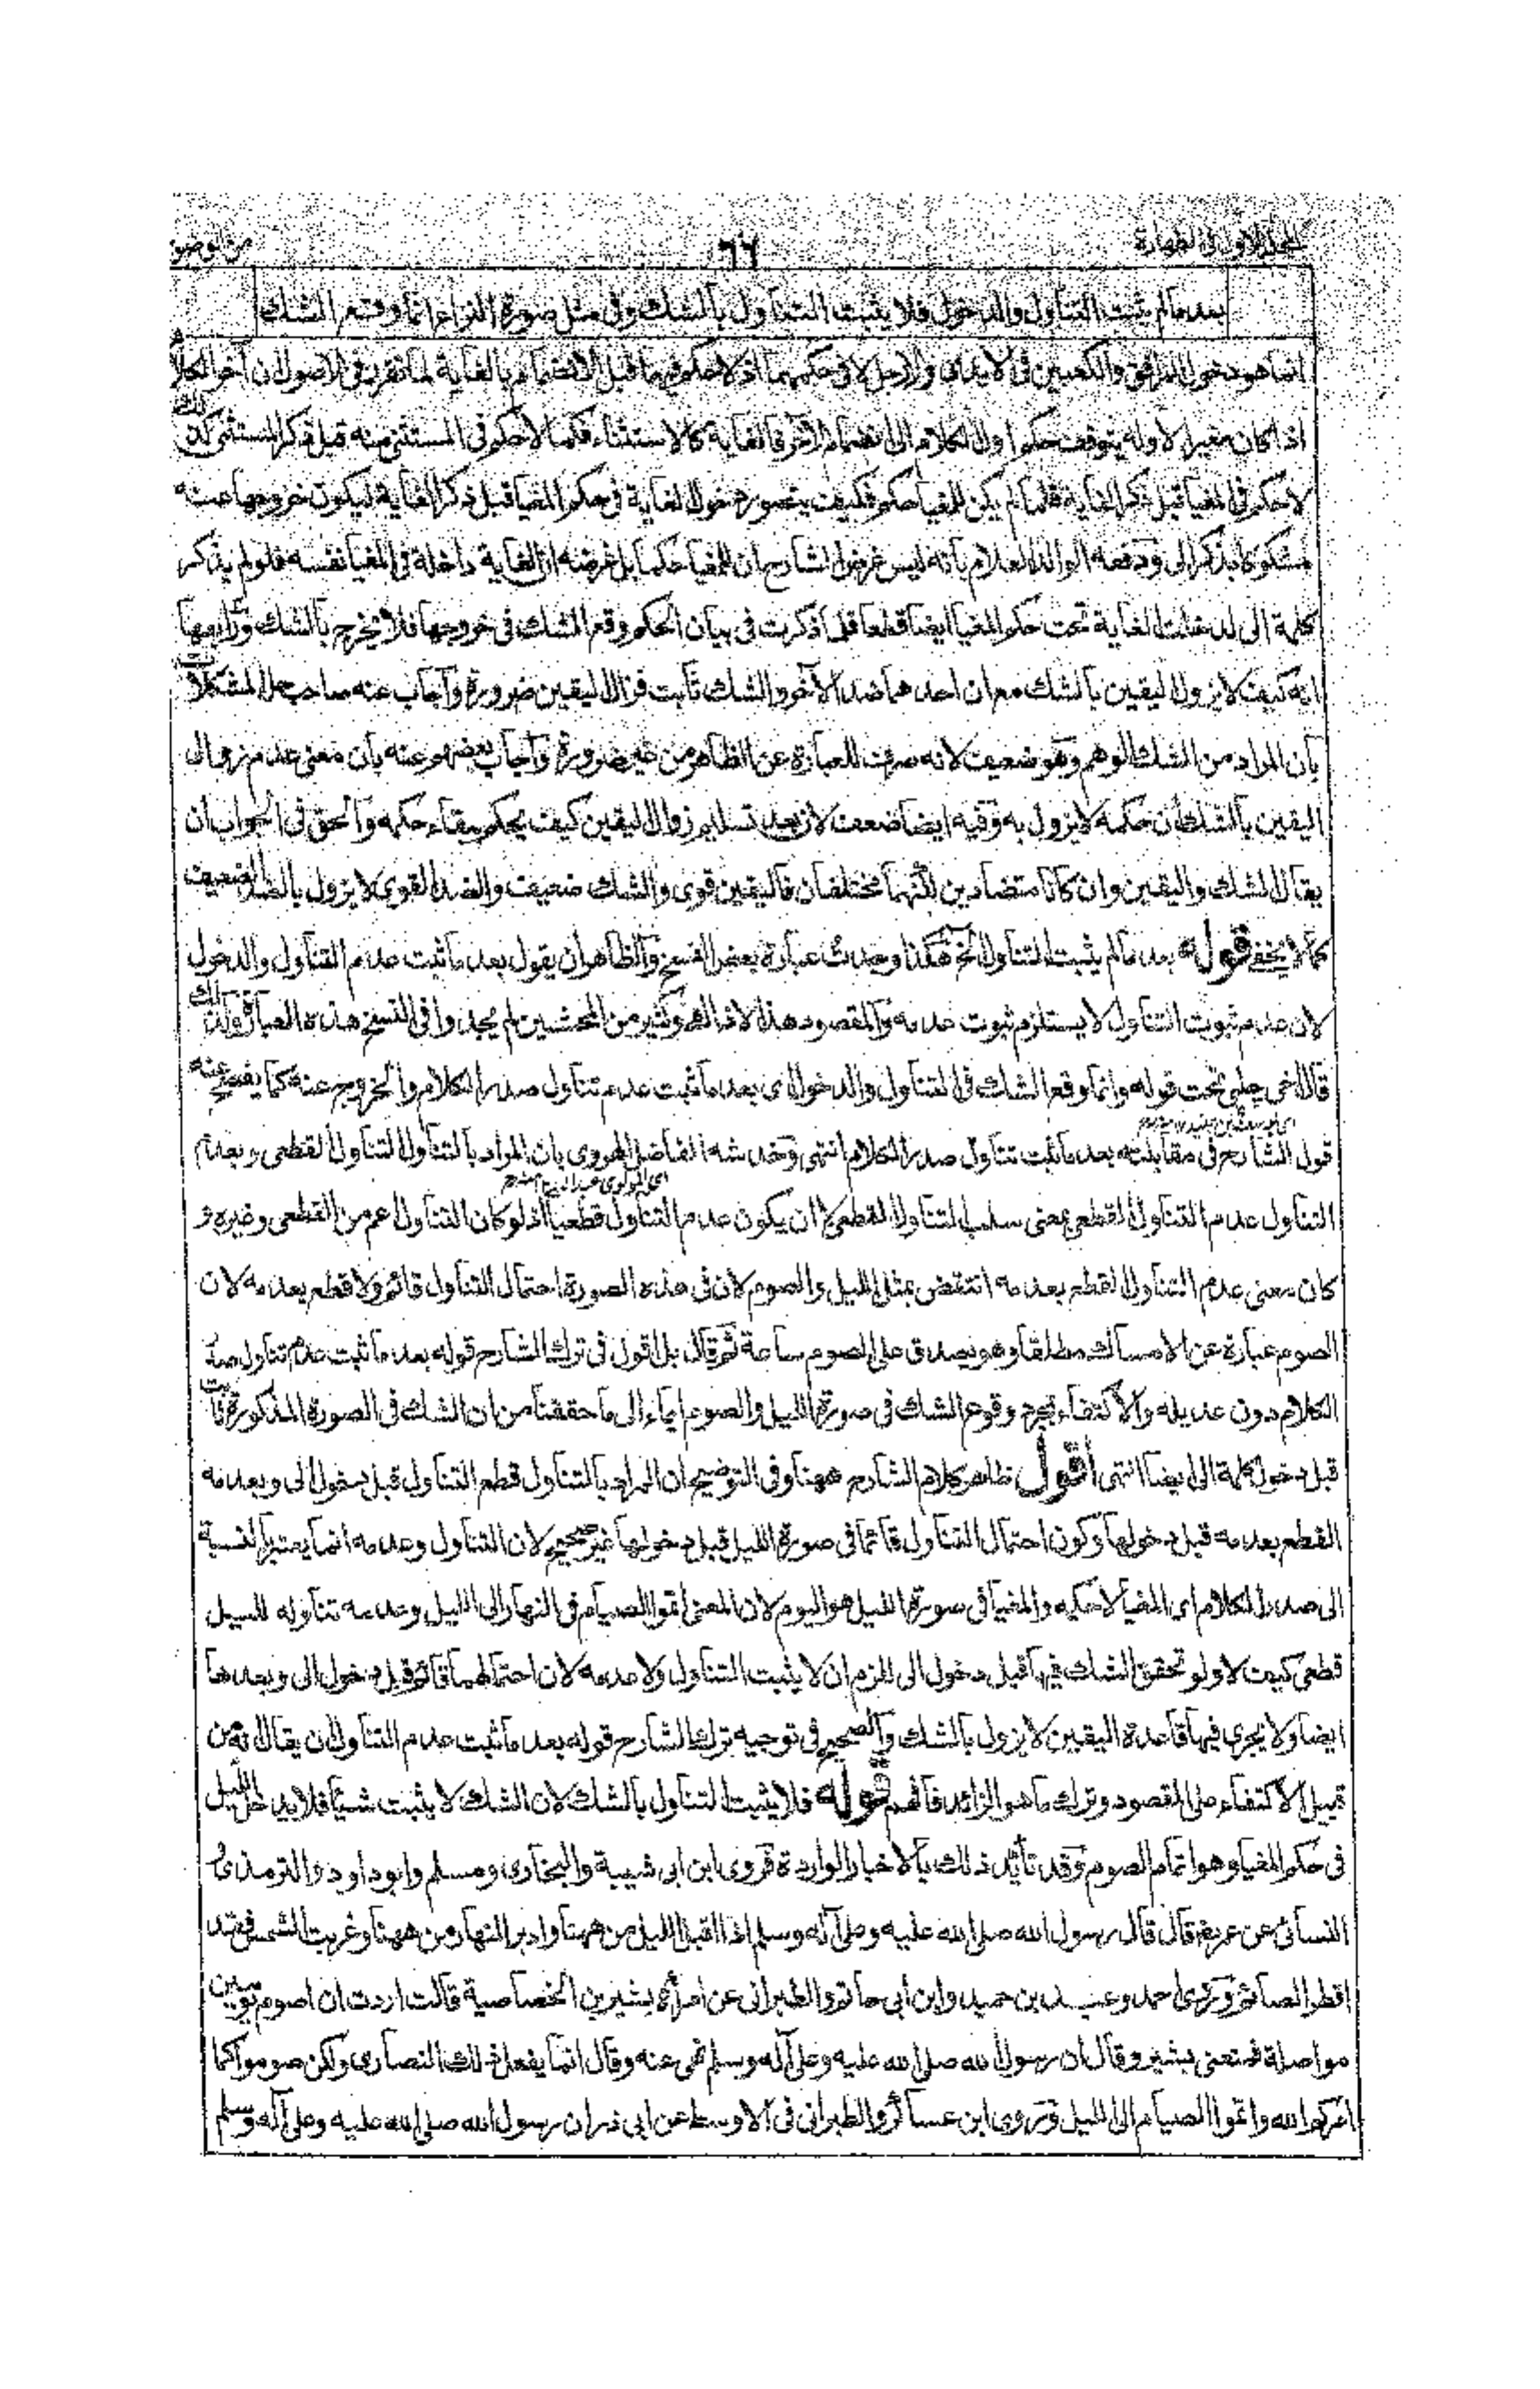 المجلد الاول فى الطهارة
٦٦
من الوضوء
بعد ما لم يثبت التناول والدخول فلا يثبت التناول بالشك وفى مثل صورة النزاع انما وقع الشك
انما هو دخول المرافق والكعبين فى الايدى والارجل لا فى حكمهما اذ لا حكم فيما قبل الانضمام بالغاية لما تقرر فى الاصول ان آخر الكلام
اذا كان مغيرا لاوله يتوقف حكم اول الكلام الى انضمام الآخر فالغاية كالاستثناء فكما لا حكم فى المستثنى منه قبل ذكر المستثنى كذلك
لا حكم فى المغيا قبل ذكر الغاية فلما لم يكن للمغيا حكم فكيف يتصور دخول الغاية فى حكم المغيا قبل ذكر الغاية ليكون خروجها عنه
مشكوكا بذكر الى ودفعه الوالد العلام بانه ليس غرض الشارح ان للمغيا حكما بل غرضه ان الغاية داخلة فى المغيا نفسه فلو لم يذكر
كلمة الى لدخلت الغاية تحت حكم المغيا ايضا قطعا فلما ذكرت فى بيان الحكم وقع الشك فى خروجها فلا يخرج بالشك ورابعها
انه كيف لا يزول اليقين بالشك مع ان احدهما ضد الآخر والشك ثابت فزال اليقين ضرورة وآجاب عنه صاحب حل المشكلات
بان المراد من الشك الوهم وهو ضعيف لانه صرف للعبارة عن الظاهر من غير ضرورة وآجاب بعضهم عنه بان معنى عدم زوال
اليقين بالشك ان حكمه لا يزول به وفيه ايضا ضعف لان بعد تسليم زوال اليقين كيف يحكم ببقاء حكمه وآلحق فى الجواب ان
يقال الشك واليقين وان كانا متضادين لكنهما مختلفان فاليقين قوى والشك ضعيف والضد القوى لا يزول بالضد الضعيف
كما لا يخفى قوله بعد ما لم يثبت التناول الخ هكذا وجدت عبارة بعض النسخ وآلظاهر ان يقول بعد ما ثبت عدم التناول والدخول
لان عدم ثبوت التناول لا يستلزم ثبوت عدمه وآلمقصود هذا لا ذا الهم وكثير من المحشين لم يجدوا فى النسخ هذه العبارة ولذلك
قال اخى چلپى تحت قوله وانما وقع الشك فى التناول والدخول اى بعد ما ثبت عدم تناول صدر الكلام والخروج عنه كما يفصح عنه
قول الشارح فى مقابلته بعد ما ثبت تناول صدر الكلام انتهى وخدشه الفاضل الهروى بان المراد بالتناول التناول القطعى وبعدم
التناول عدم التناول القطعى بمعنى سلب التناول القطعى لا ان يكون عدم التناول قطعيا اذ لو كان التناول اعم من القطعى وغيره و
كان معنى عدم التناول القطع بعدمه انتقض بمثل الليل والصوم لان فى هذه الصورة احتمال التناول قائم ولا قطع بعدمه لان
الصوم عبارة عن الامساك مطلقا وهو يصدق على الصوم ساعة ثم قال بل اقول فى ترك الشارح قوله بعد ما ثبت عدم تناول صدر
الكلام دون عديله والاكتفاء بمجرد وقوع الشك فى صورة الليل والصوم ايماء الى ما حققنا من ان الشك فى الصورة المذكورة ثابت
قبل دخول كلمة الى ايضا انتهى اقول ظاهر كلام الشارح ههنا وفى التوضيح ان المراد بالتناول قطع التناول قبل دخول الى وبعدمه
القطع بعدمه قبل دخولها وكون احتمال التناول قائما فى صورة الليل قبل دخولها غير صحيح لان التناول وعدمه انما يعتبر بالنسبة
الى صدر الكلام اى المغيا لا حكمه والمغيا فى صورة الليل هو اليوم لان المعنى اتموا الصيام فى النهار الى الليل وعدمه تناوله لليل
قطعى كيف لا ولو تحقق الشك فيها قبل دخول الى لزم ان لا يثبت التناول ولا عدمه لان احتمالهما قائم قبل دخول الى وبعدها
ايضا ولا يجرى فيها قاعدة اليقين لا يزول بالشك وآلصحيح فى توجيه ترك الشارح قوله بعد ما ثبت عدم التناول ان يقال انه من
قبيل الاكتفاء على المقصود وترك ما هو الزائد فآفهم قوله فلا يثبت التناول بالشك لان الشك لا يثبت شيئا فلا يدخل الليل
فى حكم المغيا وهو اتمام الصوم وقد تأيد ذلك بالاخبار الواردة فروى ابن ابى شيبة والبخارى ومسلم وابو داود والترمذى و
النسائى عن عمر رض قال قال رسول الله صلى الله عليه وعلى آله وسلم اذا اقبل الليل من ههنا وادبر النهار من ههنا وغربت الشمس فقد
افطر الصائم وروى احمد وعبد بن حميد وابن ابى حاتم والطبرانى عن امرأة بشير بن الخصاصية قالت اردت ان اصوم يومين
مواصلة فمنعنى بشير وقال ان رسول الله صلى الله عليه وعلى آله وسلم نهى عنه وقال انما يفعل ذلك النصارى ولكن صوموا كما
امركم الله واتموا الصيام الى الليل وروى ابن عساكر والطبرانى فى الاوسط عن ابى ذر ان رسول الله صلى الله عليه وعلى آله وسلم